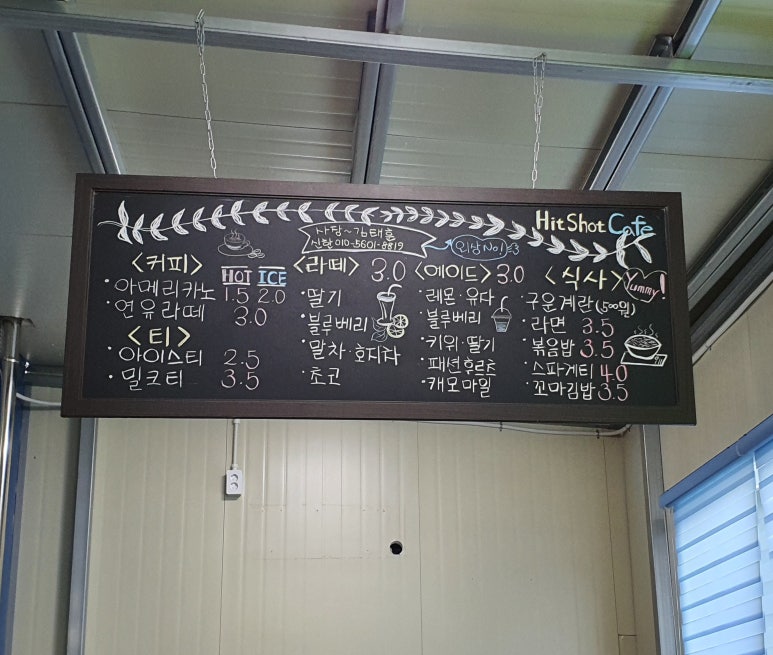 Hit Shot Cafe
사탐~김태훈
신탐 010-5601-8819
외상No!
<커피>
HOT ICE
아메리카노 1.5 2.0
연유라떼 3.0
<티>
아이스티 2.5
밀크티 3.5
<라떼> 3.0
딸기
블루베리
말차·호지차
초코
<에이드> 3.0
레몬·유자
블루베리
키위·딸기
패션후르츠
캐모마일
<식사> Yummy!
구운계란 (500원)
라면 3.5
볶음밥 3.5
스파게티 4.0
꼬마김밥 3.5